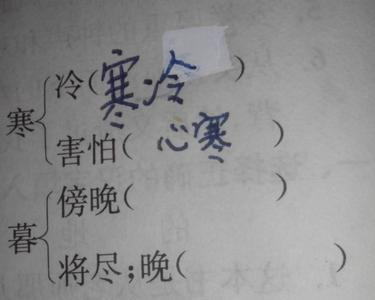 寒
冷(寒冷)
害怕(心寒)
暮
傍晚( )
将尽;晚( )